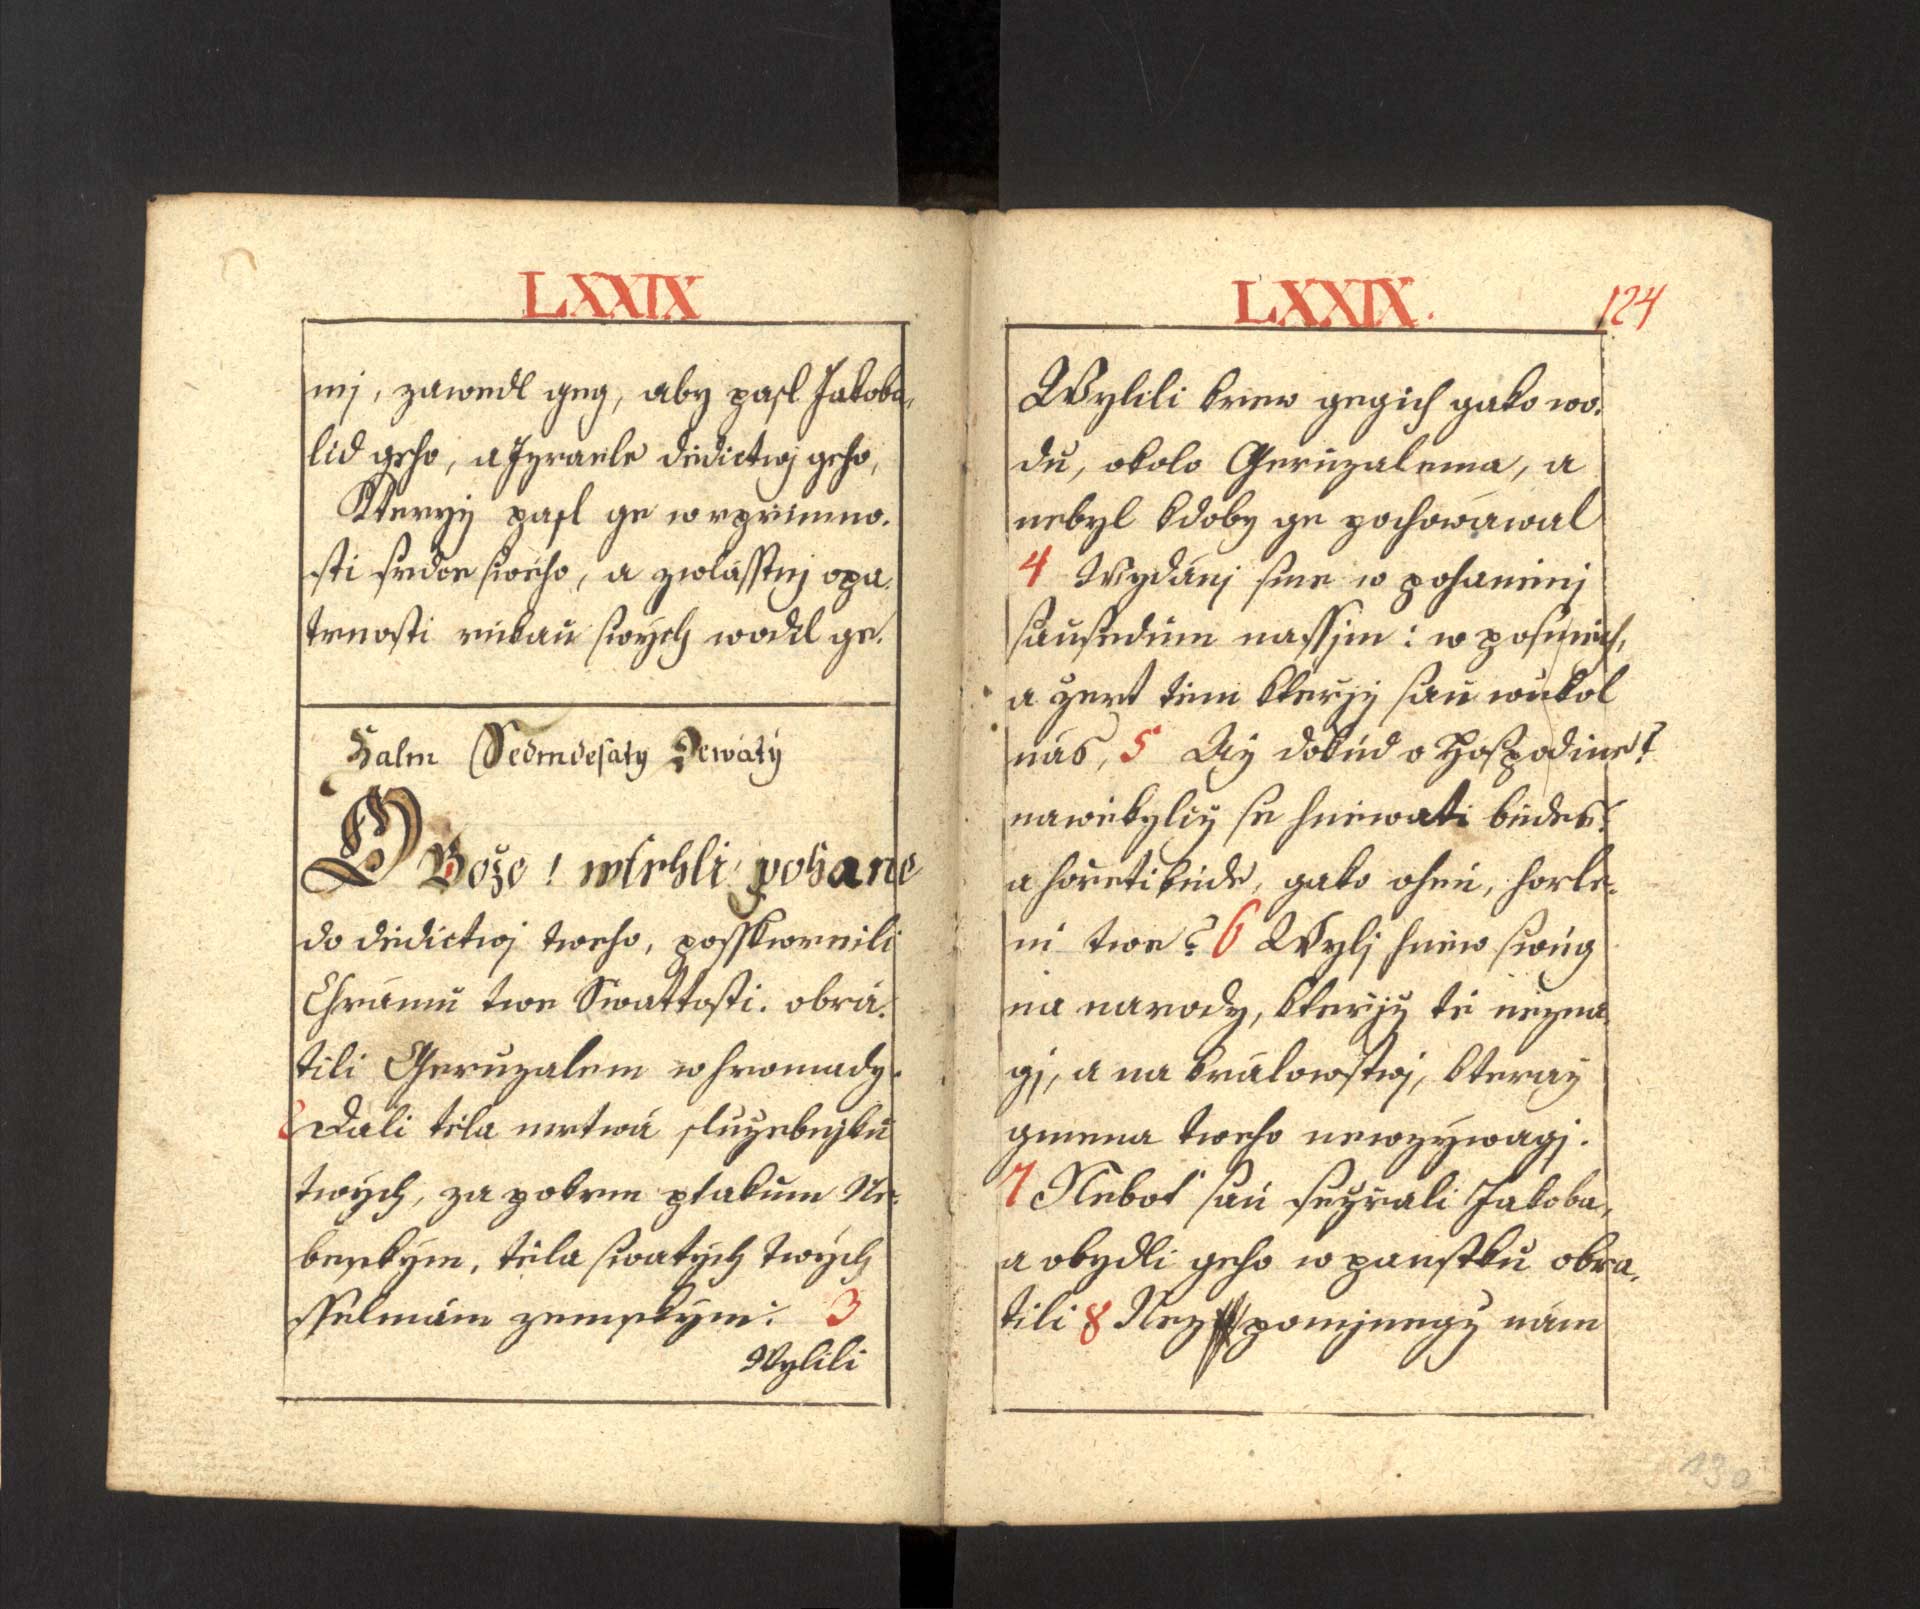 LXXIX
nj, zawedl geg, aby pasl Jakoba,
lid geho, a Jzraele dědictwj geho,
Kteryý pasl ge w vprimno.
sti srdce swého, a zwlásstnj opa.
trnosti rukau swých wodil ge.
Żalm Sedmdesaty Dewátý
O Bože! wtrhli pohane
do dědictwj tweho, posskwrnili
Chrámu twe Swattosti. obrá.
tili Geruzalem w hromady.
2 Dali těla mrtwá služebnjku
twých, za pokrm ptakum Ne-
beským, těla swatých twých
sselmám zemským: 3
Wylili
LXXIX. 124
Wylili krew gegich gako wo.
du, okolo Geruzalema, a
nebyl kdoby ge pochowáwal
4 Wydánj sme w pohaněnj
sausedům nassjm: w posměch,
a žert těm kterýž sau wukol
nás, 5 Aý dokud o Hospodine?
nawěkyliž se hněwati budes?
a hořeti bude, gako oheň, horle-
ni twe? 6 Wylj hněw swúg
na narody, kterjž tě nezna
gj, a na králowstwj, kteraž
gmena tweho newzýwagj.
7 Nebot sau sežrali Jakoba,
a obydli geho w paustku obra.
tili 8 Nez pomjnegž nám
130